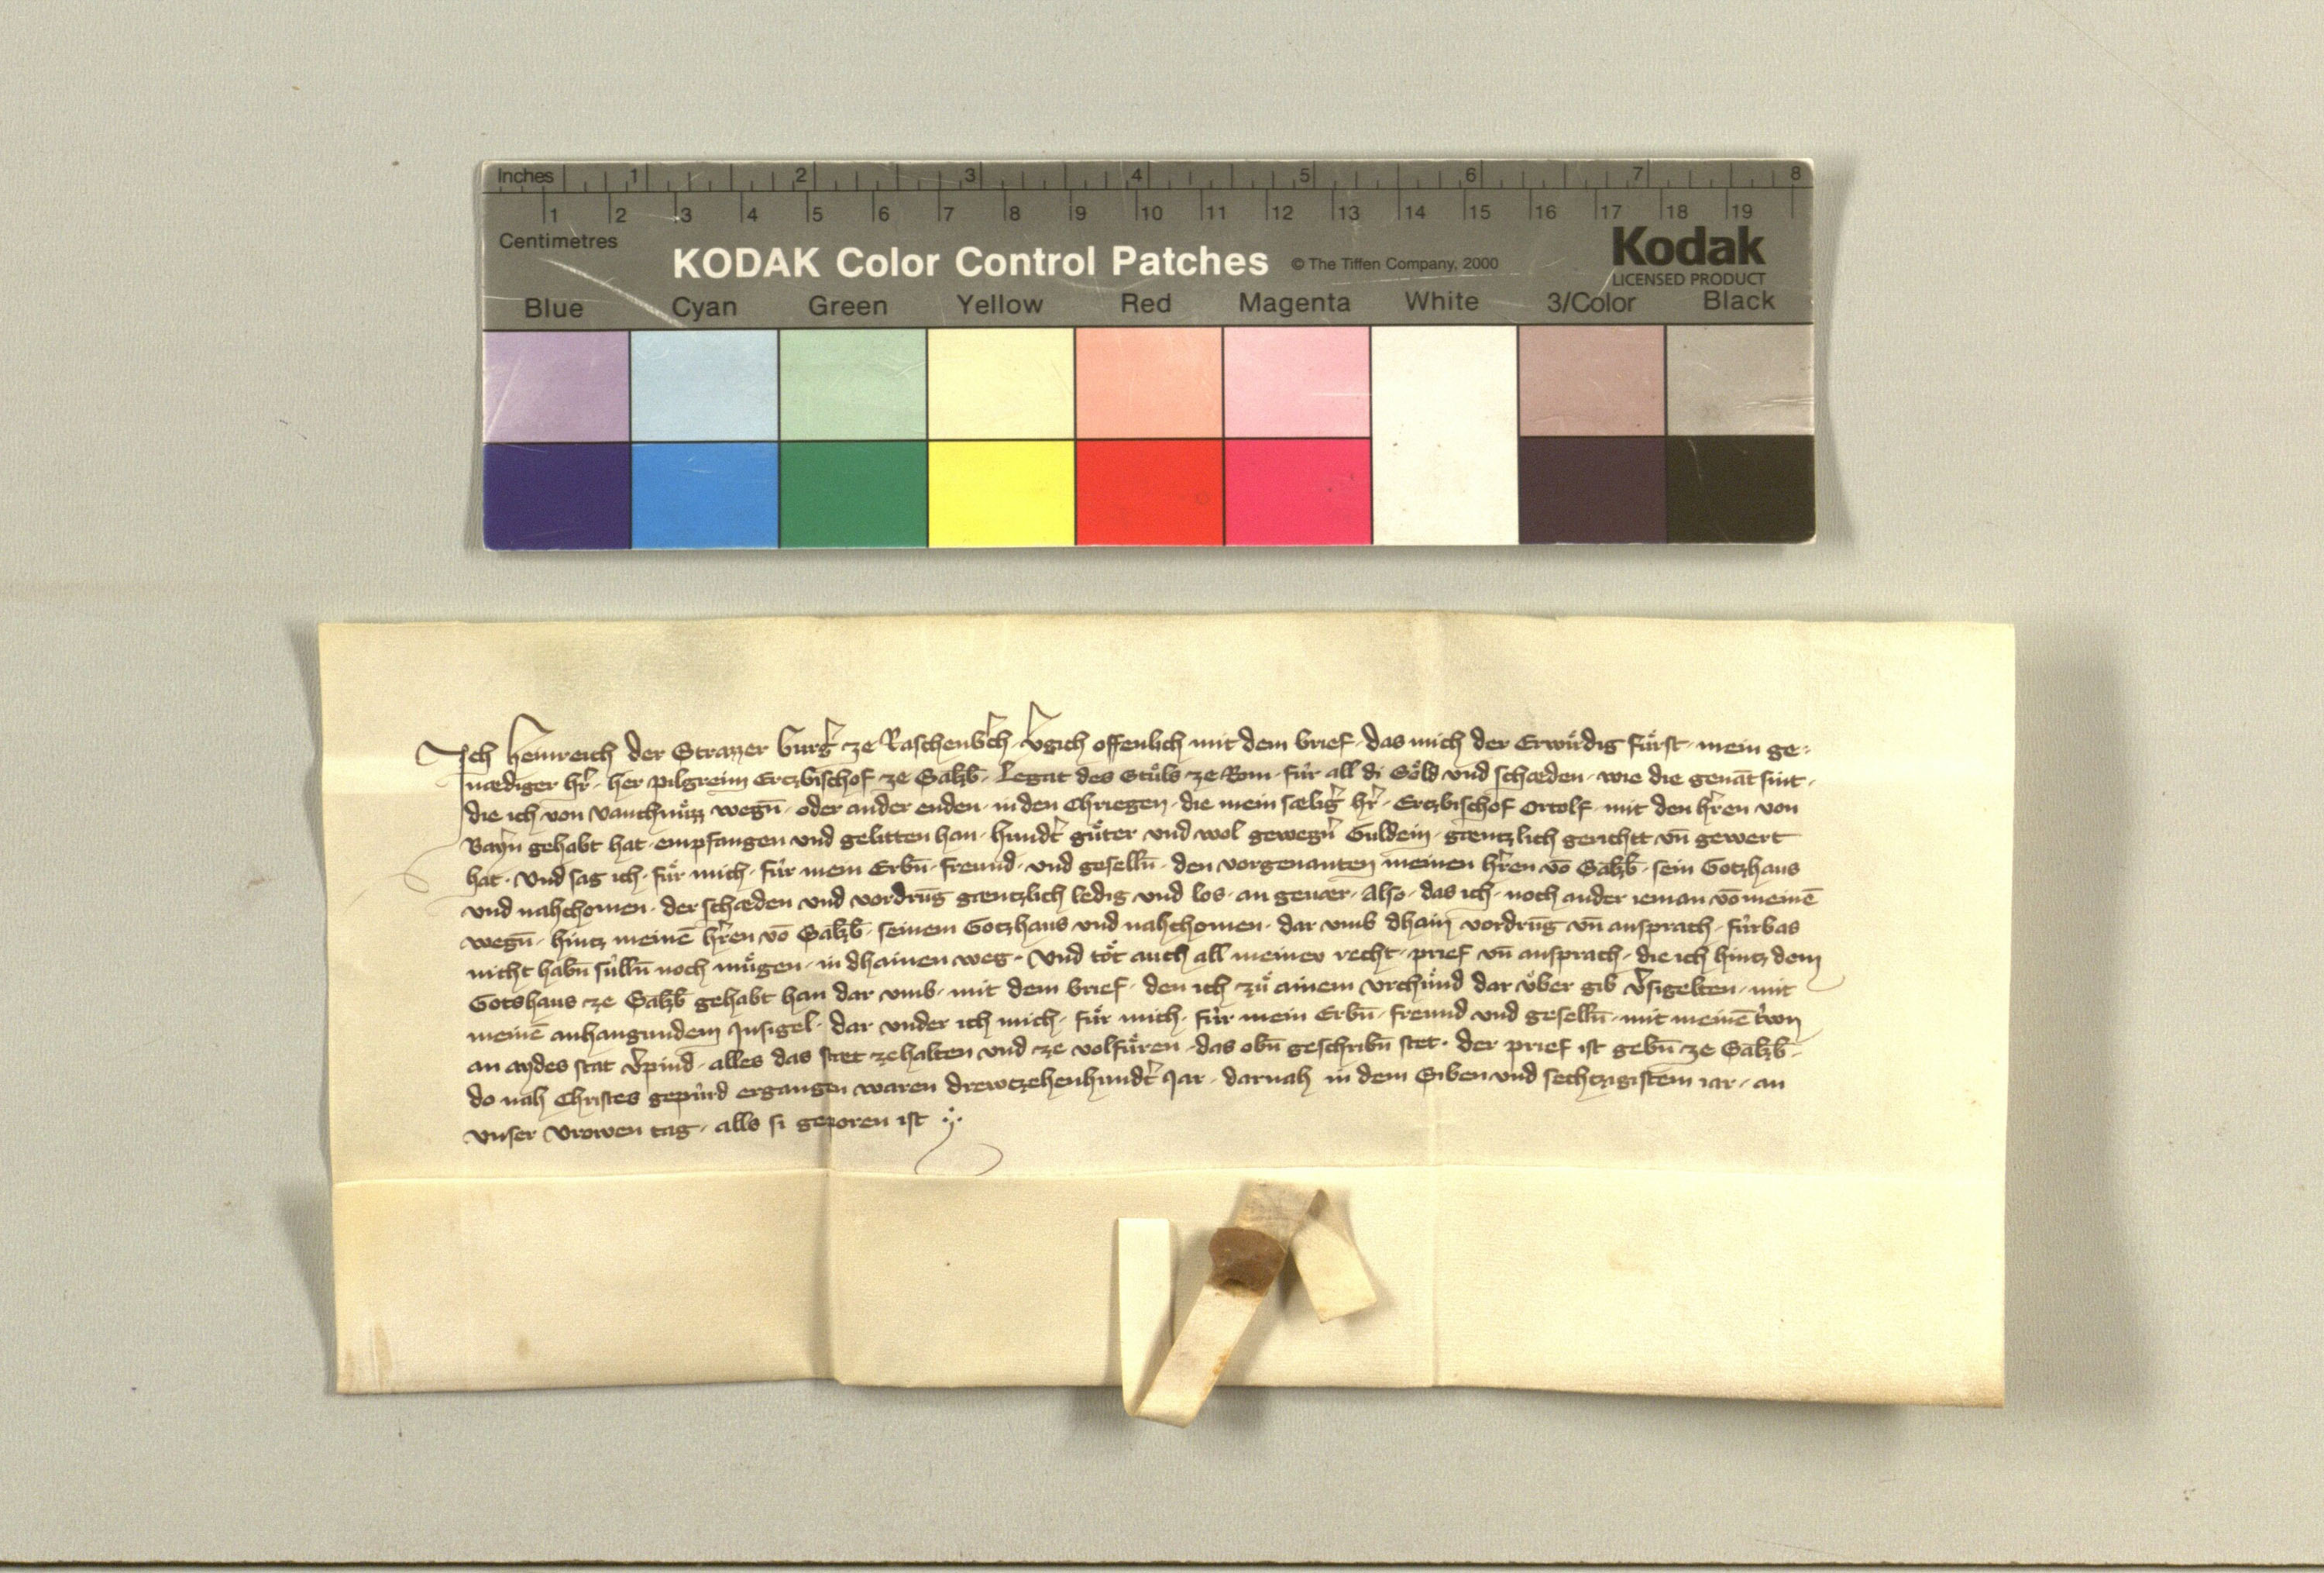 Inches 1 2 3 4 5 6 7 8
1 2 3 4 5 6 7 8 9 10 11 12 13 14 15 16 17 18 19
Centimetres
KODAK Color Control Patches © The Tiffen Company, 2000 Kodak
LICENSED PRODUCT
Blue Cyan Green Yellow Red Magenta White 3/Color Black
Ich Heinreich der Strazzer burg̉ ze Raschenbch̉ · v̉gich offenlich mit dem brief · das mich der Erwirdig fürst · mein ge-
nædiger hr̉ · her pilgreim Erczbischof ze Salzb̄ · Legat des Stůls ze Rom · für all di Söld und schæden · wie die genāt sint ·
die ich von wegn̄ · oder ander enden · in den Chriegen · die mein sælig̉ hr̉ · Erczbischof Ortolf · mit den hr̉en von
Bayr̉n gehabt hat · empfangen und gelitten han · hundt̉ gůter und wol gewegn̉ Guldein · gæntzlich gericht vn̄ gewert
hat · Und sag ich · für mich · für mein Erbn̄ · freund · und geselln̄ · den vorgenanten meinen hr̉en vō Salzb̄ · sein Gotzhaus
und nahchomen · der schæden und vordrūg gæntzlich ledig und los · an geuær · Also · das ich · noch ander ieman vō meinē
wegn̄ · hintz meinē hr̉en vō Salzb̄ · seinem Gotzhaus und nahchomen · dar vmb dhain vordrūg vn̄ ansprach · fürbas
nicht habn̄ sülln̄ noch mügen · in dhainen weg · Und töt auch all meinev recht · prief vn̄ ansprach · die ich hintz dem
Gotshaus ze Salzb̄ gehabt han dar vmb · mit dem brief · den ich zů ainem vrchünd dar über gib v̉sigelten · mit
meinē anhangundem Insigel · dar under ich mich · für mich · für mein Erbn̄ · freund und geselln̄ · mit meinē tr̉wn
an aydes stat v̉pind · alles das stæt ze halten und ze volfüren · das obn̄ geschribn̄ stet · der prief ist gebn̄ ze Salzb̄ ·
do nah Christes gepürd ergangen waren drewczehenhundt̉ Jar · darnah in dem Siben und sechtzigistem iar · an
vnser vrowen tag · alls si geporen ist